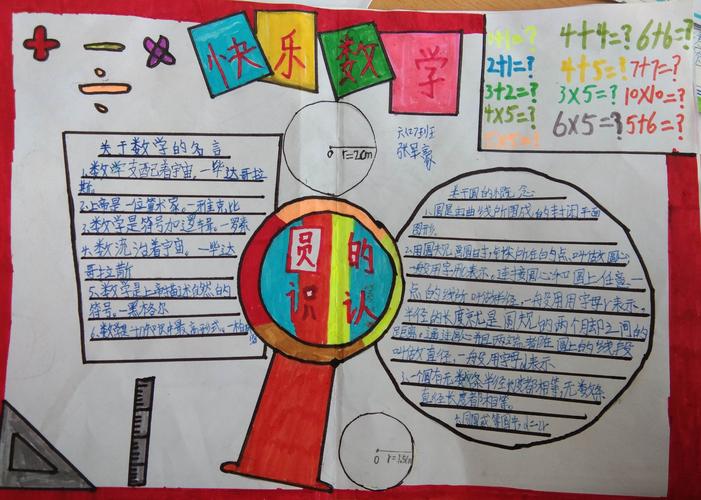 快乐数学
1+1=?
2+1=?
3+2=?
4×5=?
5×5=?
4+4=?
4+5=?
3×5=?
6×5=?
6+6=?
7+7=?
10×10=?
5+6=?
六(7)班
r=2cm
O
关于数学的名言
1.数学支配着宇宙。一毕达哥拉
斯
2.上帝是一位算术家。一雅克比
3.数学是符号加逻辑。一罗素
4.数统治着宇宙。一毕达
哥拉斯
5.数学是上帝描述自然的
符号。一黑格尔
6.数
员的
识认
关于圆的概念
1.圆是由曲线所围成的封闭平面
图形。
2.用圆规画圆时,针尖所在的点,叫做圆心
一般用字母o表示,连接圆心和圆上任意一
点的线段叫做半径,一般用用字母r表示。
半径的长度就是圆规的两个脚之间的
距离。通过圆心并且两端都在圆上的线段
叫做直径,一般用字母d表示
3.一个圆有无数条半径长度都相等,无数条
直径长度都相等。
4.同圆或等圆中,d=2r
O r=1.5cm